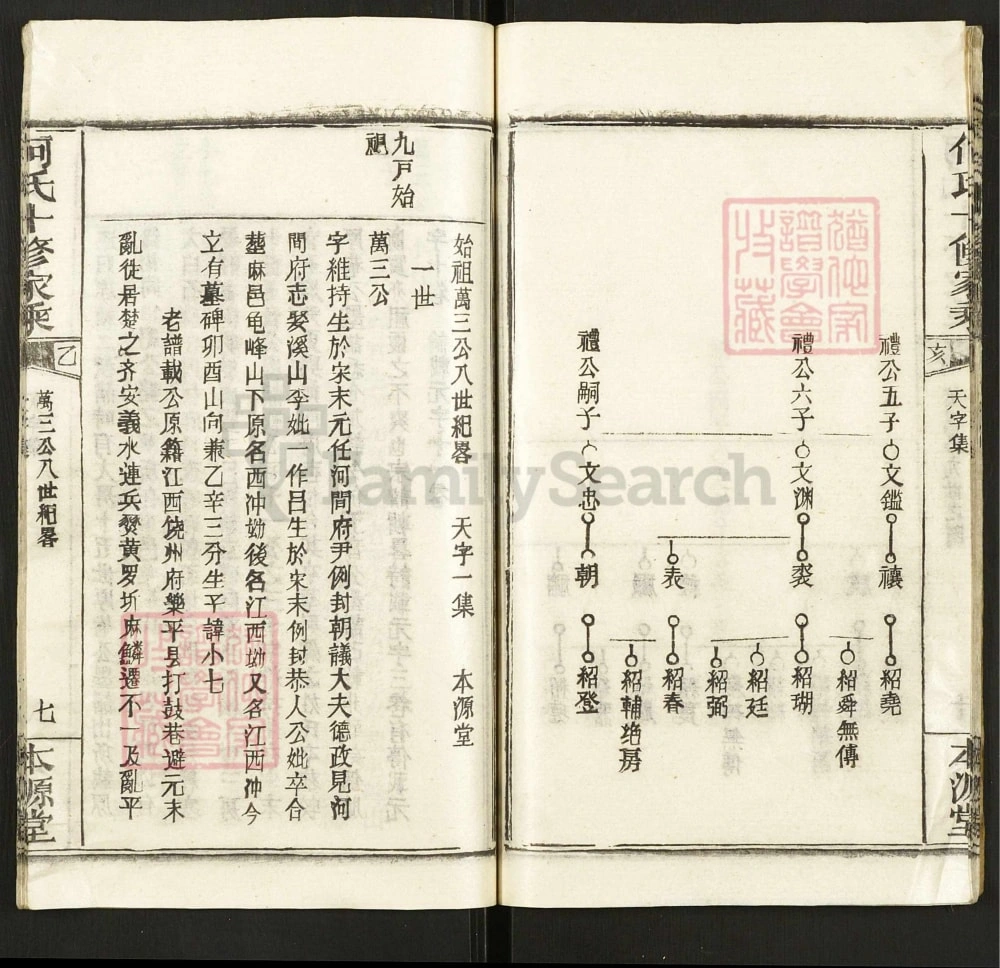 天字集
禮公五子
文鑑
禧
紹堯
紹舜無傳
禮公六子
文渊
裘
紹瑚
紹廷
紹弼
表
紹春
紹輔绝房
禮公嗣子
文忠
朝
紹登
本源堂
九戸始
祖
始祖萬三公八世紀畧 天字一集 本源堂
一世
萬三公
字維持生於宋末元任河間府尹例封朝議大夫德政見河
間府志娶溪山李妣一作吕生於宋末例封恭人公妣卒合
塟麻邑龟峰山下原名西冲坳後名江西坳又名江西冲今
立有墓碑卯酉山向兼乙辛三分生子諱小七
老譜載公原籍江西饶州府樂平县打鼓巷避元末
亂徙居楚之齐安義水連兵燹黄罗圻麻鱗鱼遷不一及亂平
何氏十修家乘
乙
萬三公八世紀畧
七
本源堂
FamilySearch